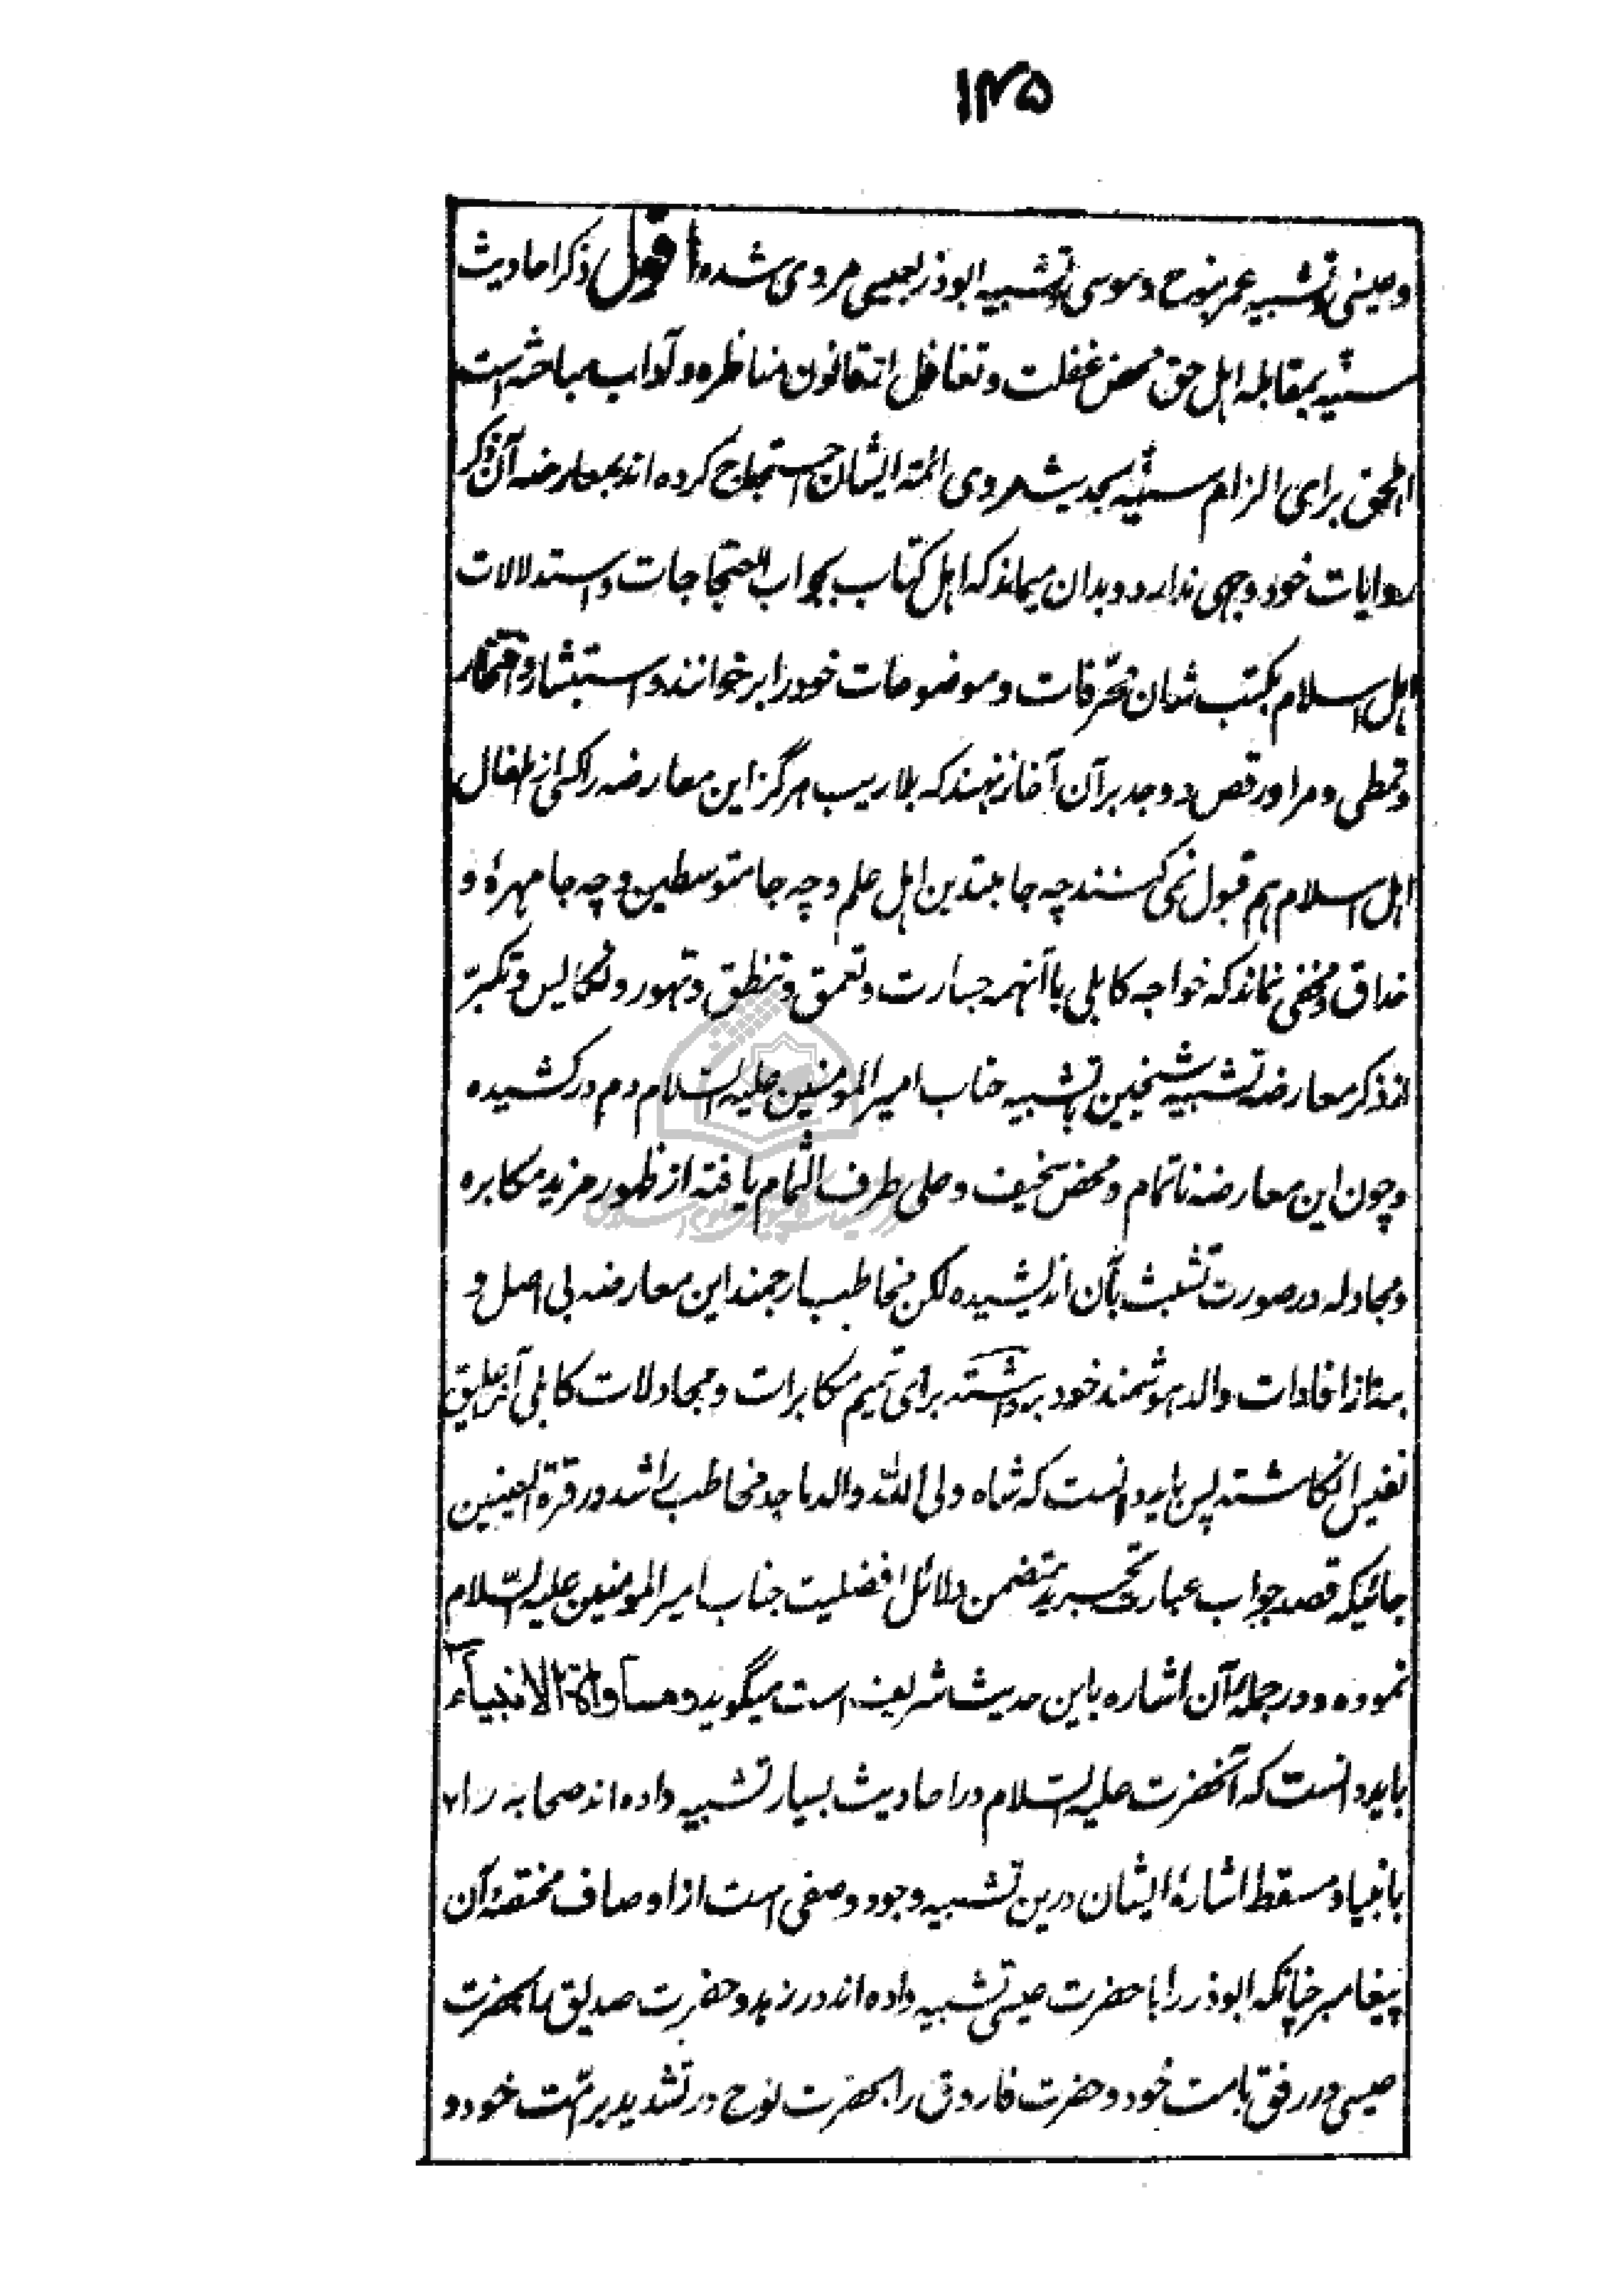 ۱۴۵
و عیسی و تشبیه عمر بنوح و موسی و تشبیه ابوذر بعیسی مروی شده اقول ذکر احادیث
سنیه بمقابله اهل حق محض غفلت و تغافل از قانون مناظره و آداب مباحثه است
اهل حق برای الزام سنیه بحدیث مروی ائمه ایشان احتجاج کرده اند بمعارضه آن ذکر
روایات خود وجهی ندارد و بدان میماند که اهل کتاب بجواب احتجاجات و استدلالات
اهل اسلام بکتب شان محرّفات و موضوعات خود را برخوانند و استبشار و افتخار
و تمطی و مرا و رقص و وجد بر آن آغاز نهند که بلا ریب هرگز این معارضه را کمی از اطفال
اهل اسلام هم قبول نمی کنند چه جا مبتدین اهل علم و چه جا متوسطین و چه جا مهره و
حذاق و مخفی نماند که خواجه کابلی با آنهمه جسارت و تعمق و تنطق و تهور و تکایس و تکبّر
از ذکر معارضه تشبیه شیخین با تشبیه جناب امیر المومنین علیه السلام دم درکشیده
و چون این معارضه ناتمام و محض سخیف و علی طرف الثمام یافته از ظهور مزید مکابره
و مجادله در صورت تشبث بآن اندیشیده لکن مخاطب ارجمند این معارضه بی اصل و
بی از افادات والد هوشمند خود برداشته برای تتمیم مکابرات و مجادلات کابلی آنرا علیق
نفیس انگاشته پس باید دانست که شاه ولی الله والد ماجد مخاطب راشد در قرة العینین
جائیکه قصد جواب عبارت تجرید متضمن دلائل افضلیت جناب امیر المومنین علیه السّلام
نموده و در جمله آن اشاره باین حدیث شریف است میگوید و مساواة الانبیاء
باید دانست که آنحضرت علیه السّلام در احادیث بسیار تشبیه داده اند صحابه را
بانبیا و مسقط اشارهٔ ایشان درین تشبیه وجود وصفی است از اوصاف مختصهٔ آن
پیغامبر چنانکه ابوذر را با حضرت عیسی تشبیه داده اند در زهد و حضرت صدیق را بحضرت
عیسی در رفق با امت خود و حضرت فاروق را بحضرت نوح در تشدید بر امّت خود و